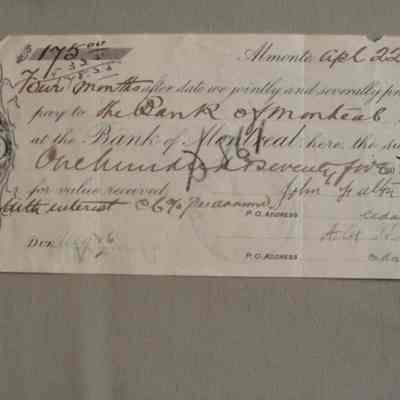 $ 175.00 Almonte Apl 22
Four months after date we jointly and severally pro
pay to the Bank of Montreal
at the Bank of Montreal here, the su
One hundred & seventy five
for value received John
with interest @ 6% per annum P.O. ADDRESS
Due Aug 26
P.O. ADDRESS